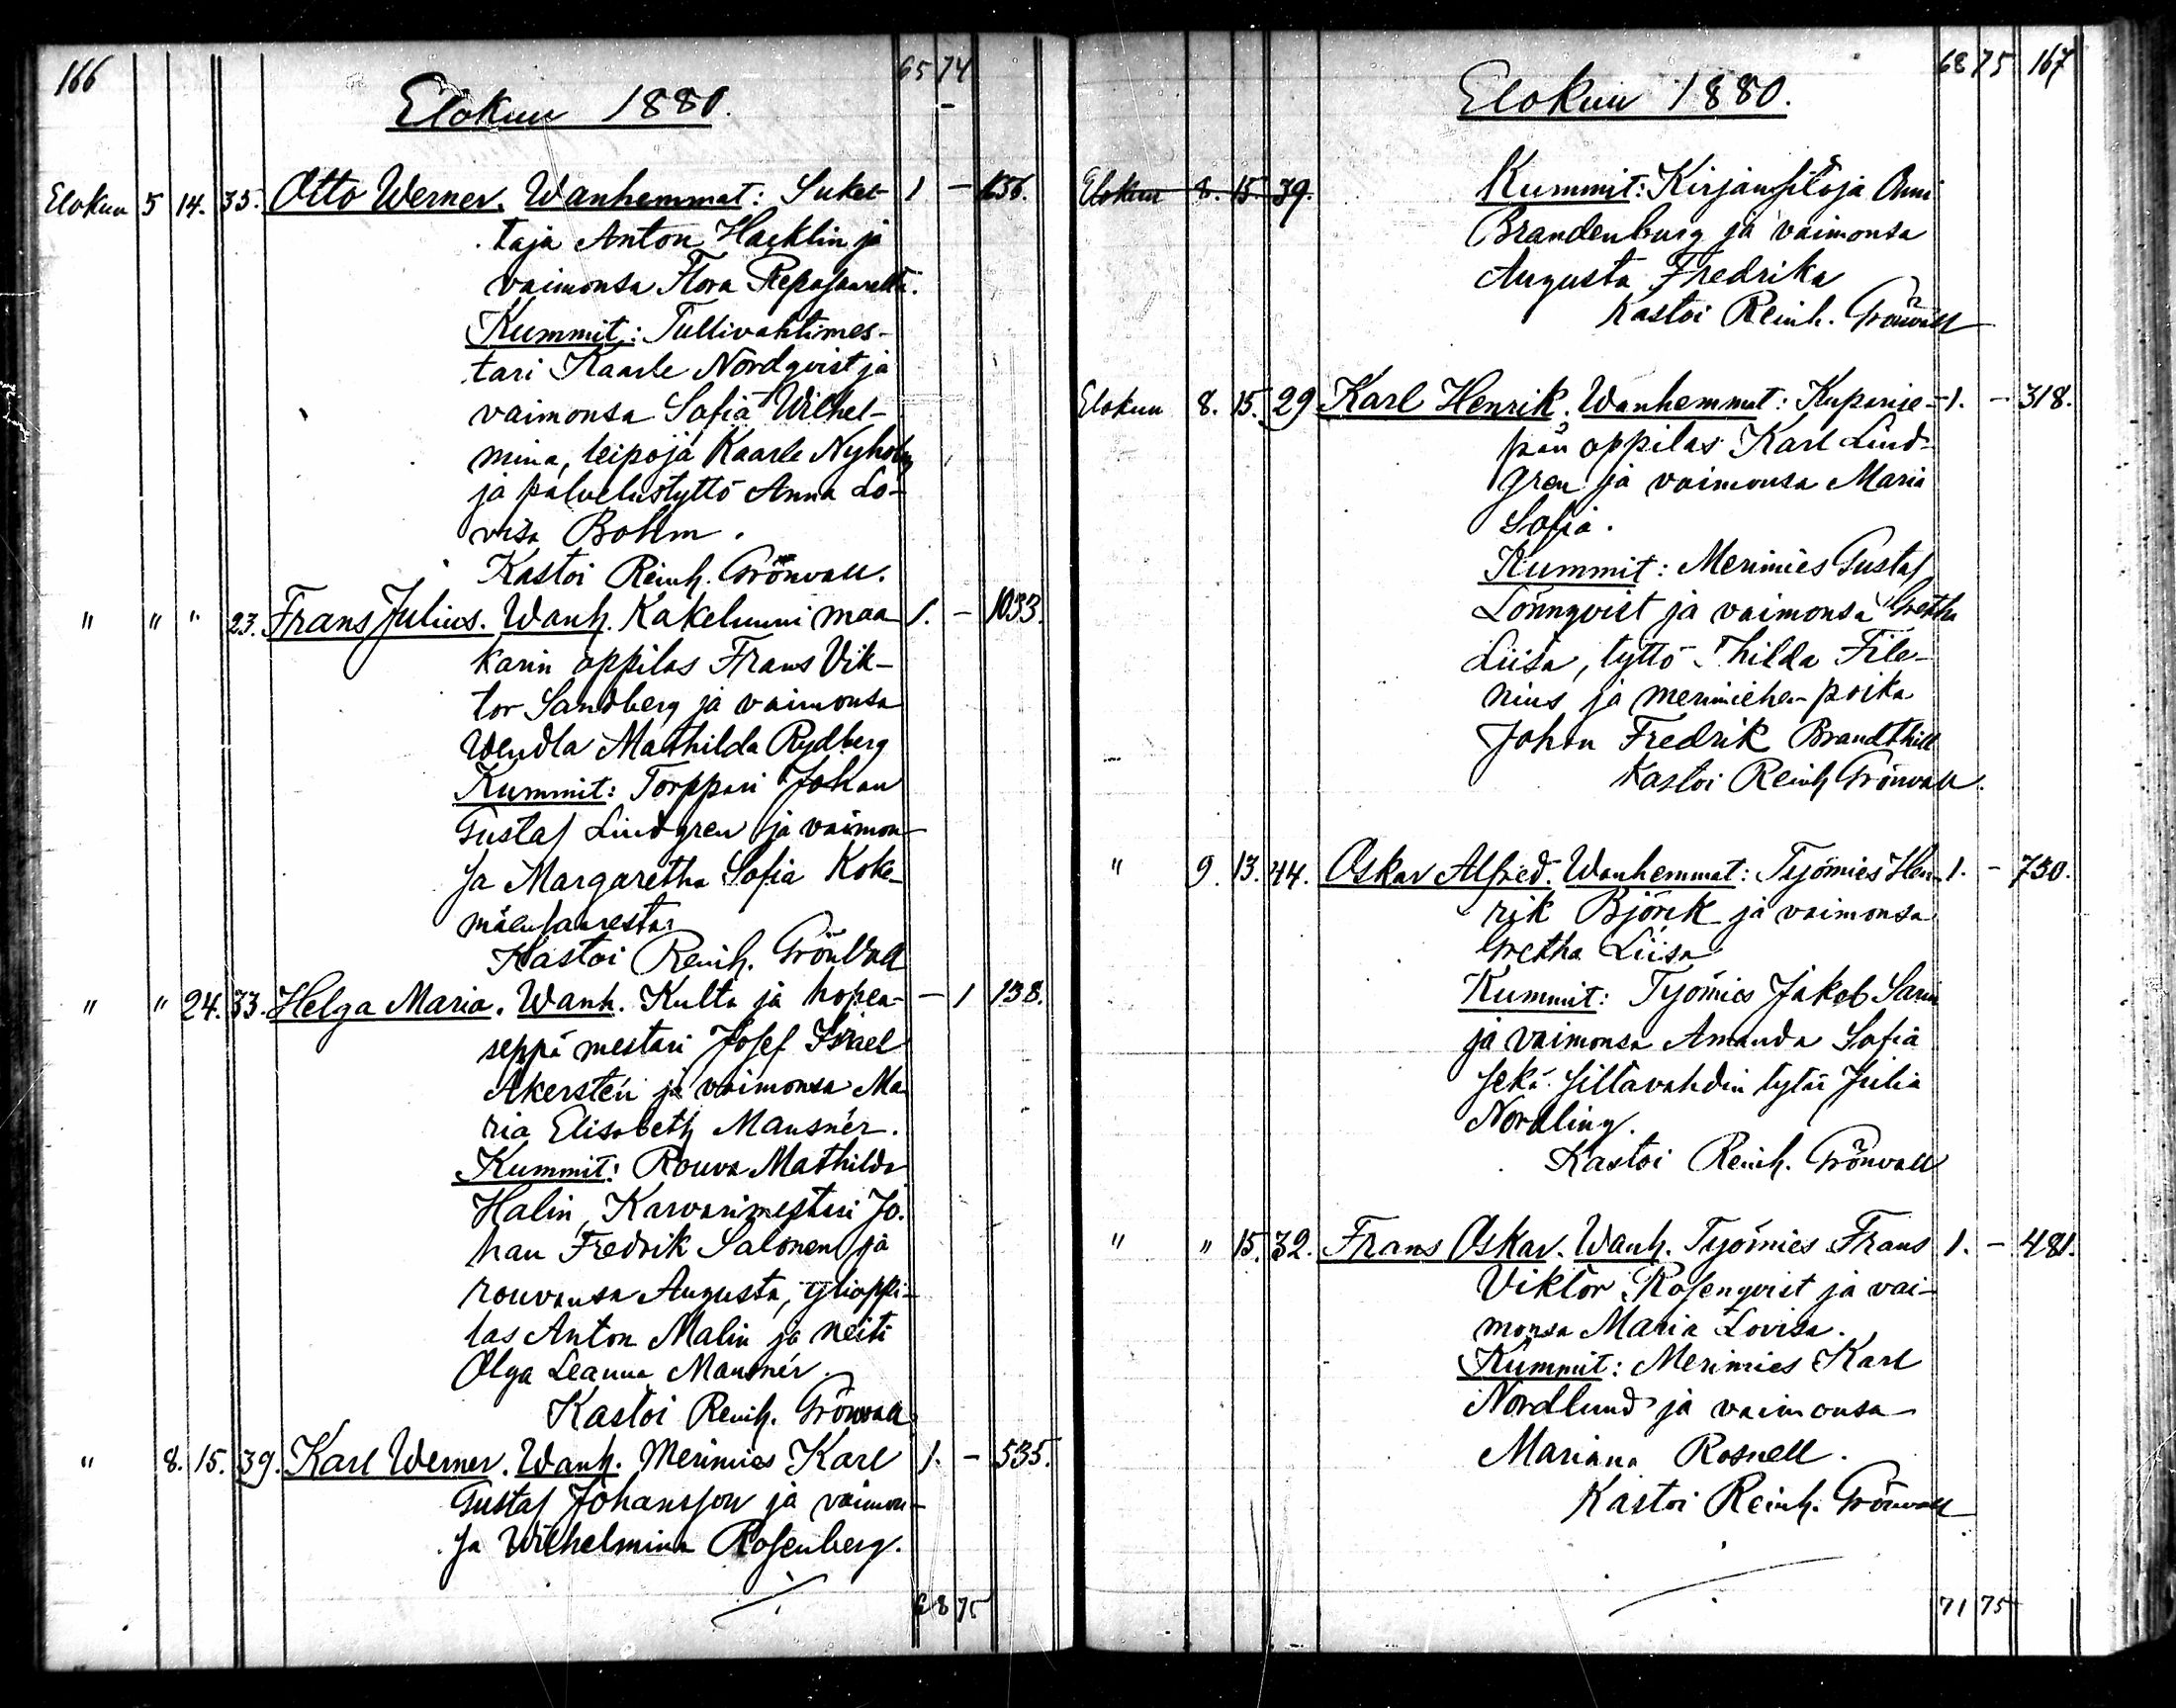 166
65 74
Elokuu 1880.
-
Elokuu 5 14. 35. Otto Werner. Wanhemmat: Sukel- 1 - 656.
taja Anton Hacklin ja
vaimonsa Flora Reposaarelta.
Kummit: Tullivahtimes-
tari Kaarle Nordqvist ja
vaimonsa Sofia Wilhel-
mina, leipojä Kaarle Nyholm
ja palvelustyttö Anna Lo-
visa Bohm.
Kastoi Reinh. Grönvall.
" " " 23. Frans Julius. Wanh. Kakeluuni maa- 1. - 1033.
karin oppilas Frans Vik-
tor Sandberg ja vaimonsa
Wendla Mathilda Rydberg
Kummit: Torppari Johan
Gustaf Lindgren ja vaimon-
sa Margaretha Sofia Koke-
mäensaaresta
Kastoi Reinh. Grönvall
" " 24. 33. Helga Maria. Wanh. Kulta ja hopea- - 1 138.
seppä mestari Josef Israel
Akerstén ja vaimonsa Ma-
ria Elisabeth Mansnér.
Kummit: Rouva Mathilda
Halin, Karvarimestari Jo-
han Fredrik Salonen ja
rouvansa Augusta, ylioppi-
las Anton Malin ja neiti
Olga Leanna Mansnér.
Kastoi Reinh. Grönvall
" 8. 15. 39. Karl Werner. Wanh. Merimies Karl 1. - 535.
Gustaf Johansson ja vaimon-
sa Wilhelmina Rosenberg.
68 75
68 75 167
Elokuu 1880.
Elokuu 8. 15. 39. Kummit: Kirjansitoja
Brandenburg ja vaimonsa
Augusta Fredrika
Kastoi Reinh. Grönvall
Elokuu 8. 15. 29 Karl Henrik. Wanhemmat: Kuparise- 1. - 318.
pän oppilas Karl Lind-
gren ja vaimonsa Maria
Sofia.
Kummit: Merimies Gustaf
Lönnqvist ja vaimonsa Gretha
Liisa, tyttö Thilda File-
nius ja merimiehen poika
Johan Fredrik Brandthill
Kastoi Reinh Grönvall.
" 9. 13. 44. Oskar Alfred. Wanhemmat: Työmies Hen- 1. - 730.
rik Björk ja vaimonsa
Gretha Liisa
Kummit: Työmies Jakob Sarin
ja vaimonsa Amanda Sofia
sekä siltavahdin tytär Julia
Nordling.
Kastoi Reinh. Grönvall
" " 15. 32. Frans Oskar. Wanh. Työmies Frans 1. - 481.
Viktor Rosenqvist ja vai-
monsa Maria Lovisa.
Kummit: Merimies Karl
Nordlund ja vaimonsa
Mariana Rosnell.
Kastoi Reinh. Grönvall
71 75